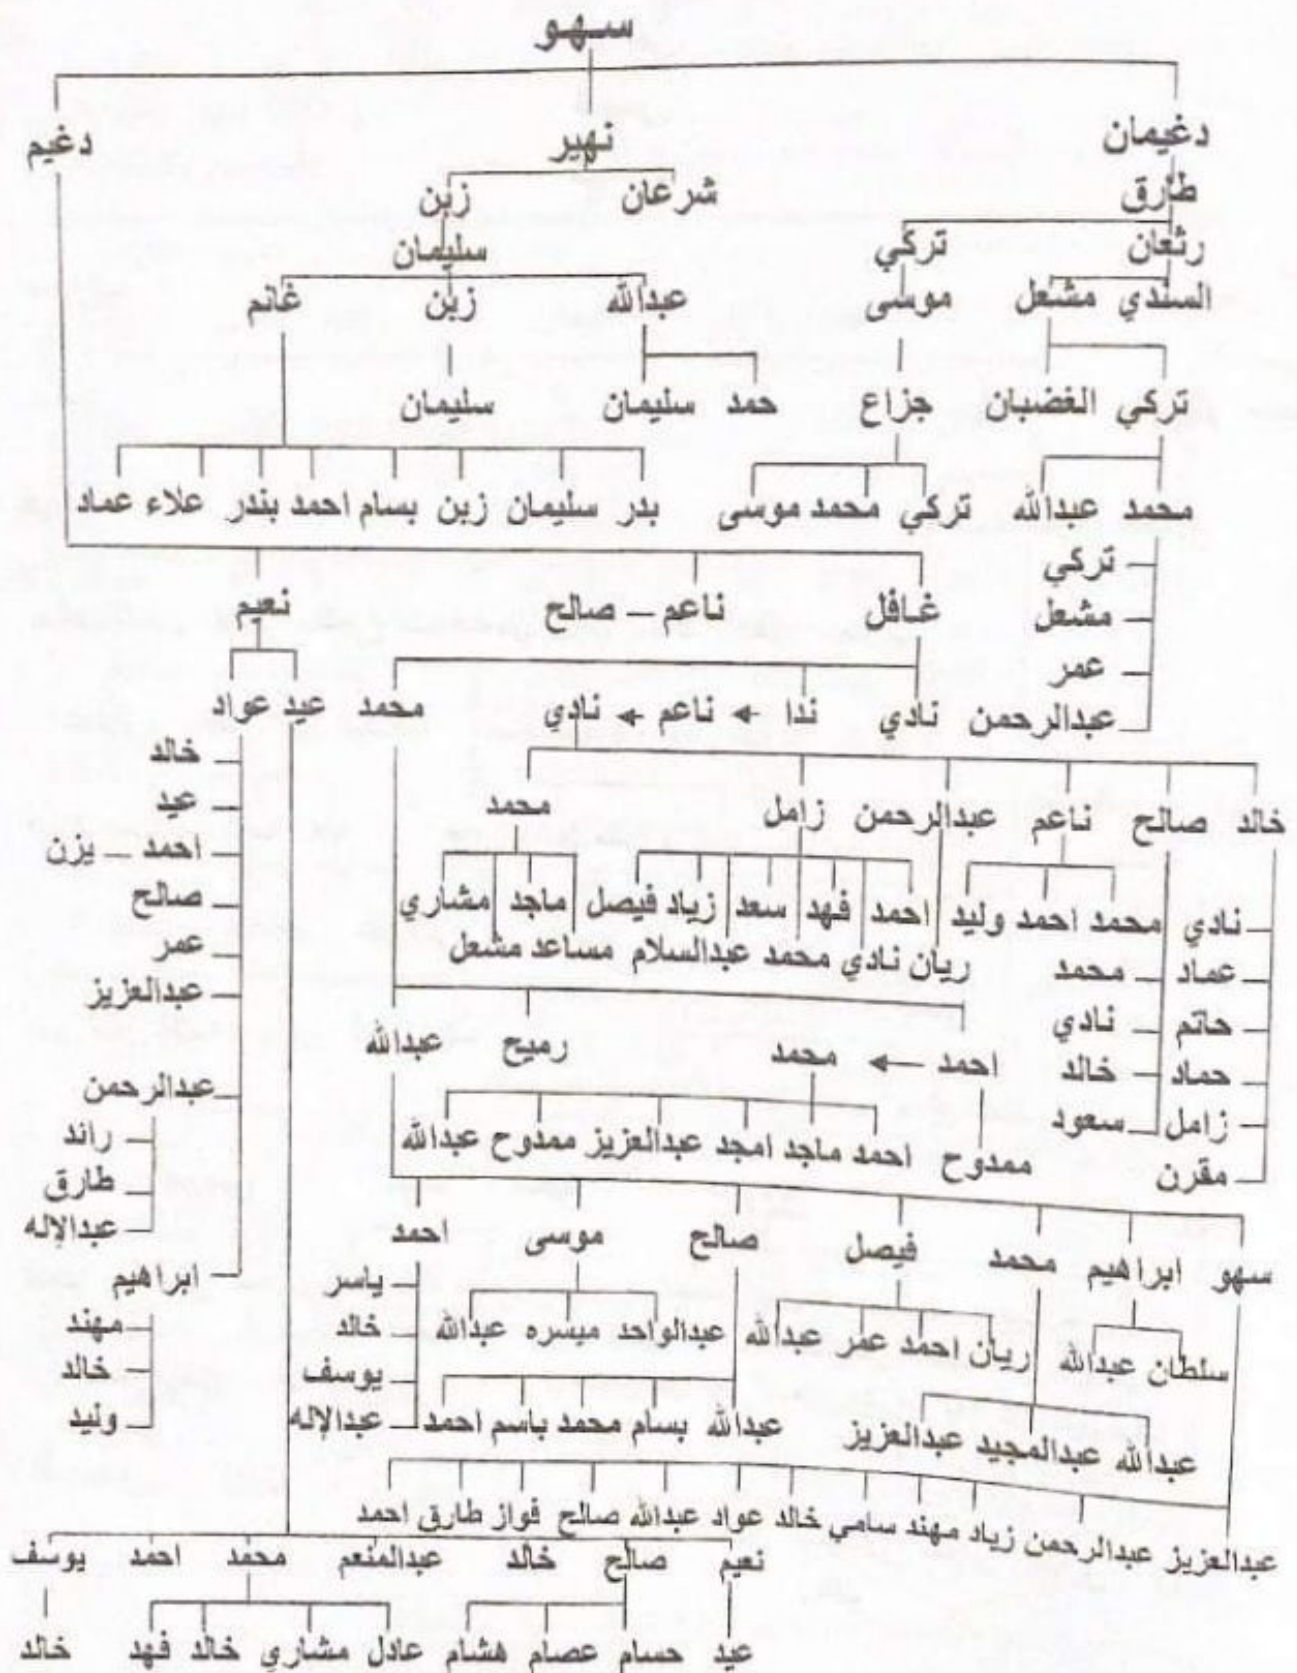 سهو
دغيمان نهير دغيم
طارق شرعان زبن
رثعان تركي سليمان
السندي مشعل موسى عبدالله زبن غانم
تركي الغضبان جزاع حمد سليمان سليمان
محمد عبدالله تركي محمد موسى بدر سليمان زبن بسام احمد بندر علاء عماد
تركي
مشعل
عمر
عبدالرحمن
غافل ناعم صالح نعيم
نادي ندا ناعم نادي محمد عيد عواد
خالد
عيد
احمد يزن
صالح
عمر
عبدالعزيز
عبدالرحمن
رائد
طارق
عبدالإله
ابراهيم
مهند
خالد
وليد
خالد صالح ناعم عبدالرحمن زامل محمد
محمد احمد وليد احمد فهد سعد زياد فيصل ماجد مشاري
ريان نادي محمد عبدالسلام مساعد مشعل
نادي
عماد
حاتم
حماد
زامل
مقرن
محمد
نادي
خالد
سعود
احمد محمد رميح عبدالله
ممدوح احمد ماجد امجد عبدالعزيز ممدوح عبدالله
سهو ابراهيم محمد فيصل صالح موسى احمد
ياسر
خالد
يوسف
عبدالإله
سلطان عبدالله ريان احمد عمر عبدالله عبدالواحد ميسره عبدالله
عبدالله عبدالمجيد عبدالعزيز عبدالله بسام محمد باسم احمد
عبدالعزيز عبدالرحمن زياد مهند سامي خالد عواد عبدالله صالح فواز طارق احمد
نعيم صالح خالد عبدالمنعم محمد احمد يوسف
عيد حسام عصام هشام عادل مشاري خالد فهد خالد